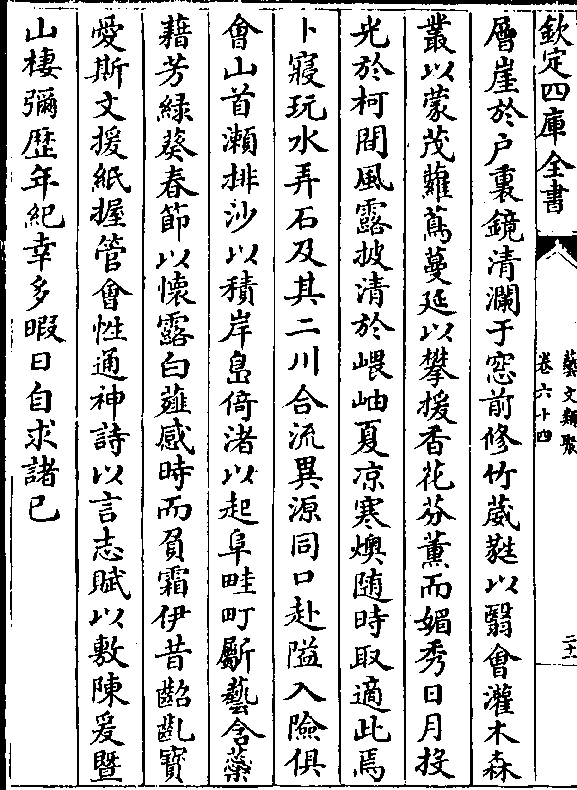 欽定四庫全書
藝文類聚
卷六十四
二十一
層崖於户裏鏡清瀾于窓前修竹葳蕤以翳會灌木森
叢以蒙茂蘿蔦蔓延以攀援香花芬薰而媚秀日月投
光於柯間風露披清於㟪岫夏凉寒燠随時取適此焉
卜寢玩水弄石及其二川合流異源同口赴隘入險俱
會山首瀨排沙以積岸㠀倚渚以起阜畦町𣃁藝含蘂
藉芳緑葵春節以懐露白薤感時而負霜伊昔齠齓寶
愛斯文援紙握管會性通神詩以言志賦以敷陳爰暨
山棲彌歴年紀幸多暇日自求諸已